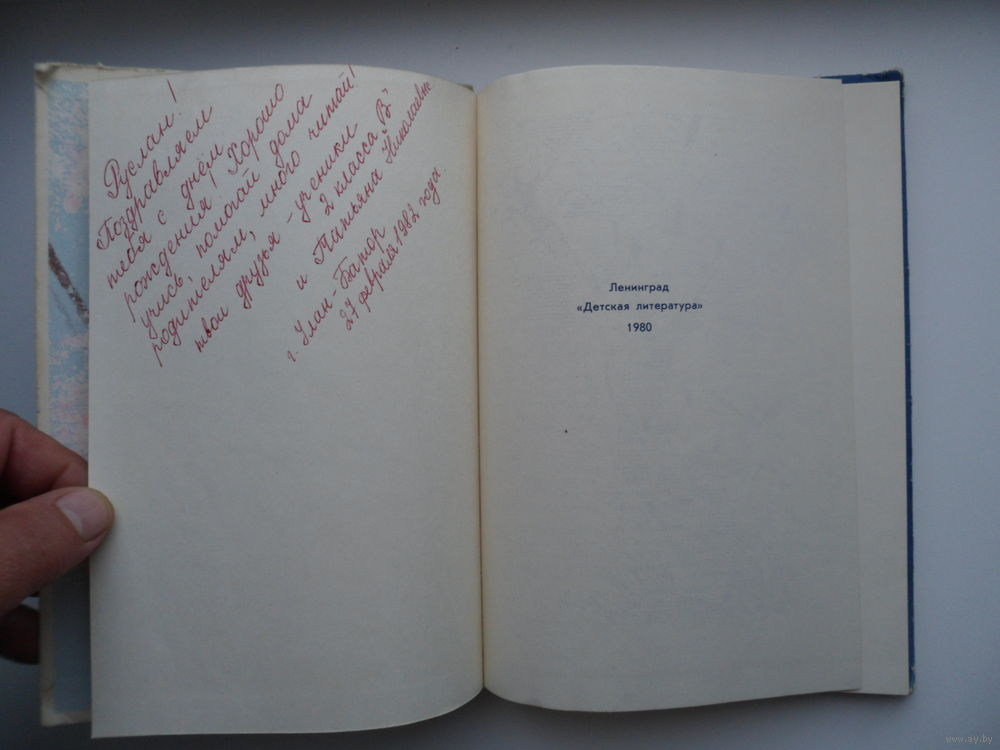 Руслан!
Поздравляем
тебя с днём
рождения! Хорошо
учись, помогай дома
родителям, много читай!
твои друзья - ученики
2 класса „В"
и Татьяна Николаевна
г. Улан-Батор
27 февраля 1982 года.
Ленинград
«Детская литература»
1980
www.ay.by